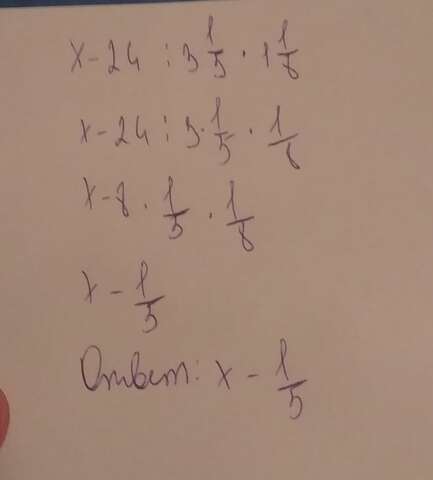 x - 24 : 3 1/5 · 1 1/8
x - 24 : 3 · 1/5 · 1/8
x - 8 · 1/5 · 1/8
x - 1/5
Ответ: x - 1/5